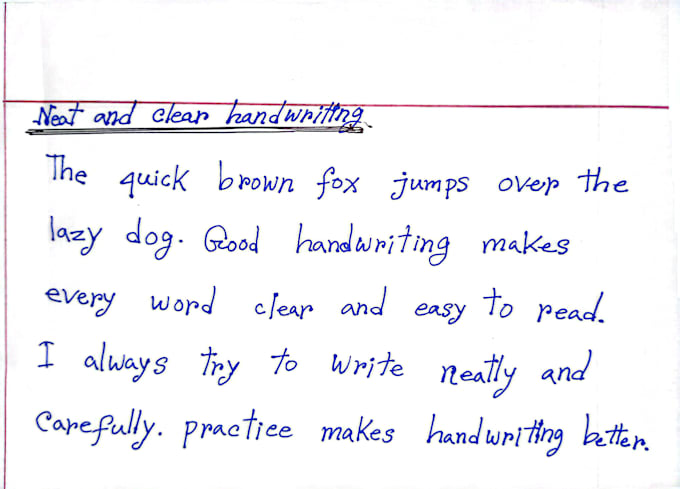 Neat and clear handwriting
The quick brown fox jumps over the
lazy dog. Good handwriting makes
every word clear and easy to read.
I always try to write neatly and
Carefully. practice makes handwriting better.